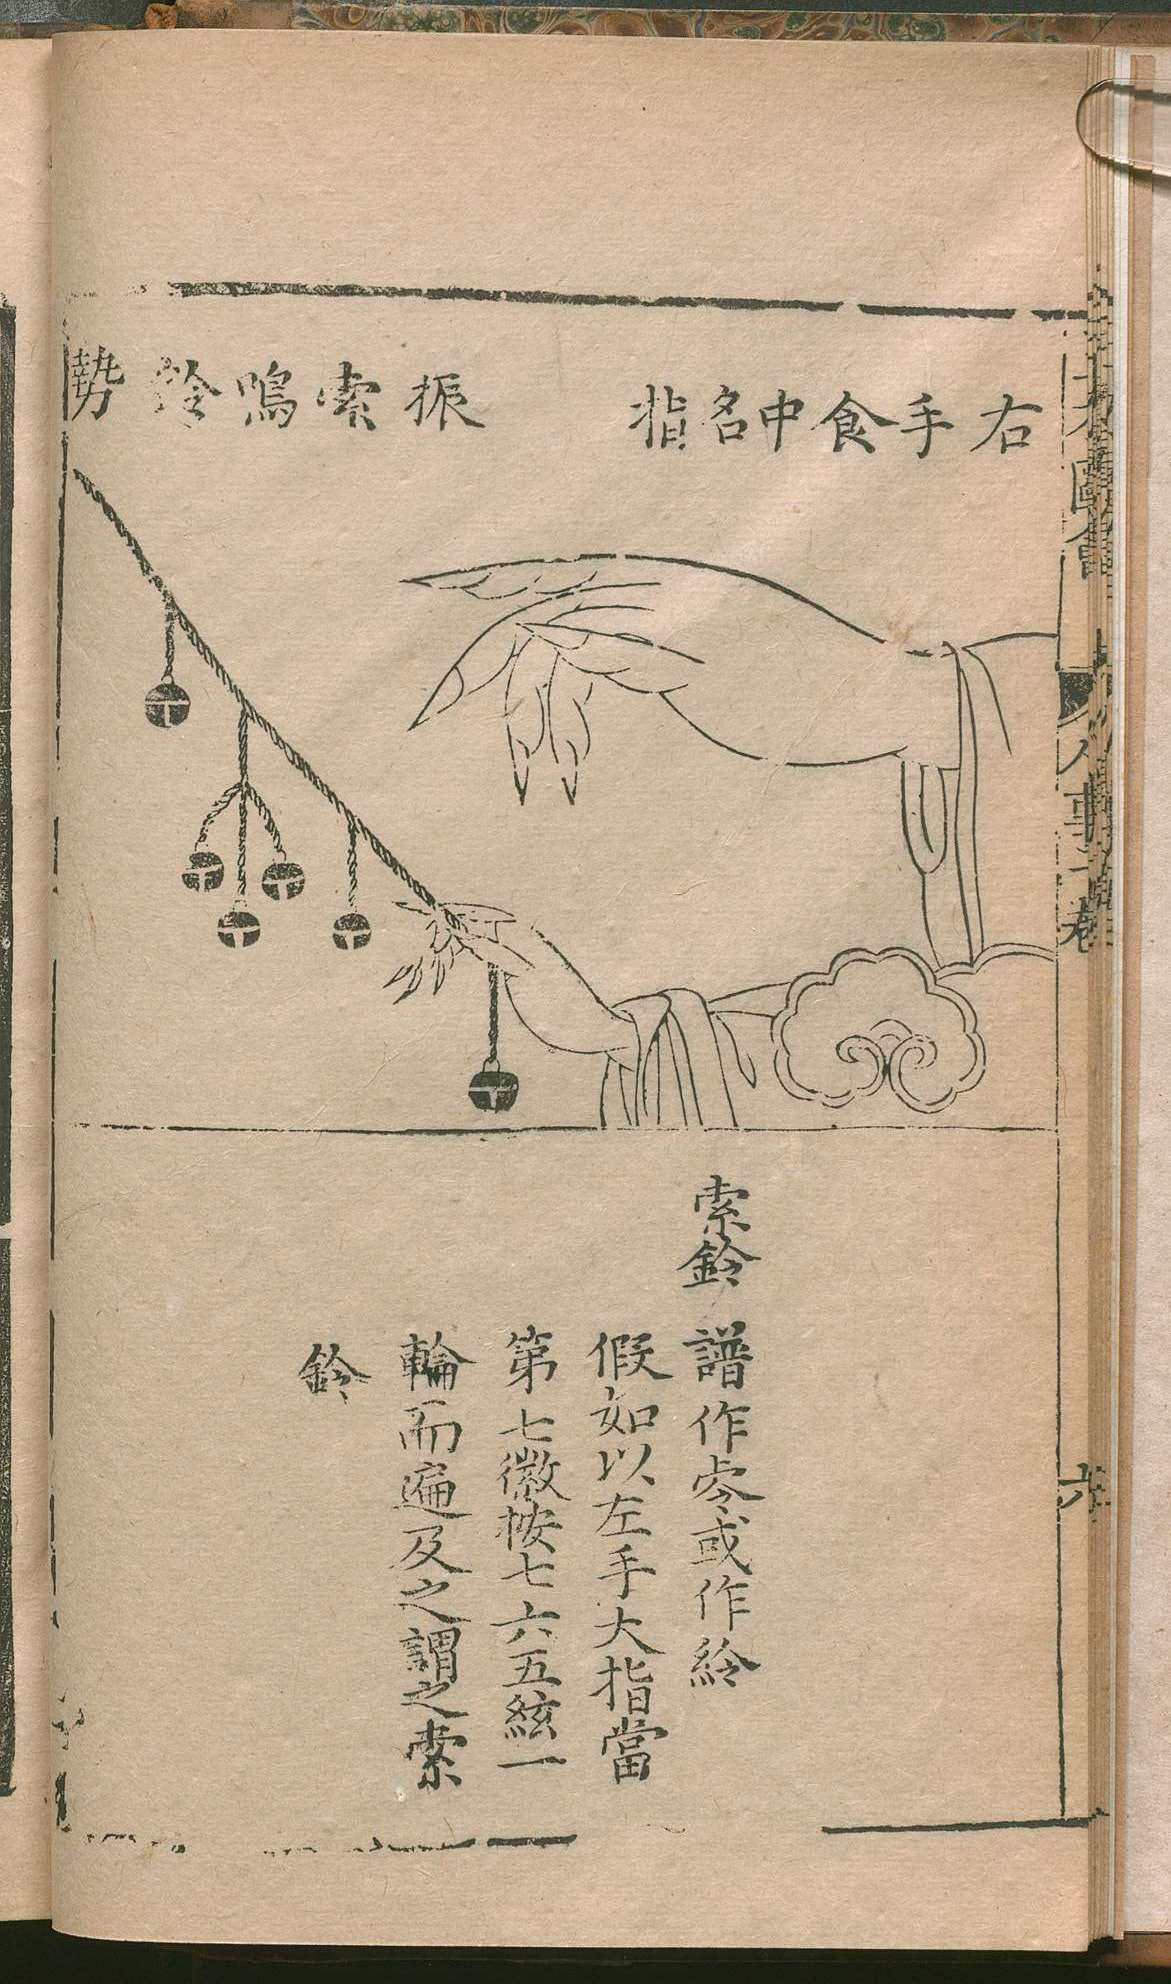 右手食中名指
振索鳴鈴勢
索鈴 譜作㱓或作紟
假如以左手大指當
第七徽按七六五絃一
輪而遍及之謂之索
鈴
圖會
人事
卷
六